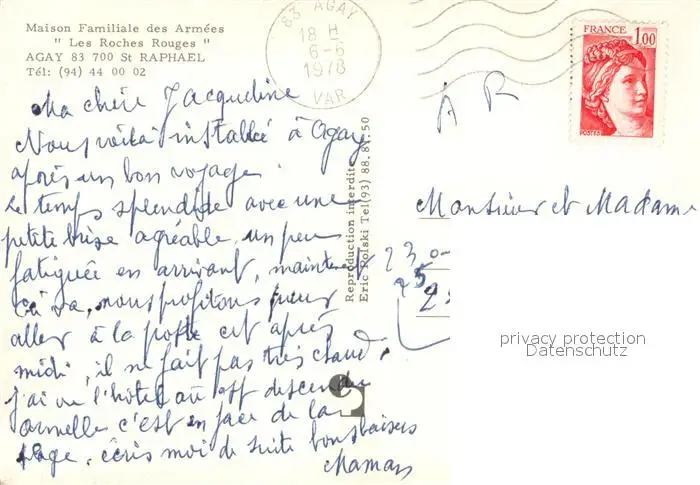 Maison Familiale des Armées
" Les Roches Rouges "
AGAY 83 700 St RAPHAEL
Tél: (94) 44 00 02
83 AGAY
18 H
6-6
1978
VAR
FRANCE
1,00
POSTES
A R
Ma chère Jacqueline
Nous voilà installée à Agay
après un bon voyage.
le temps splendide avec une
petite brise agréable, un peu
fatiguée en arrivant, maintenant
ça va, nous profitons pour
aller à la poste cet après
midi, il ne fait pas très chaud,
j'ai vu l'hôtel où descendu
c'est en face de la
plage. écris moi de suite bons baisers
Maman
Reproduction interdite
Eric Polski Tel(93) 88.87.50
Monsieur et Madame
privacy protection
Datenschutz